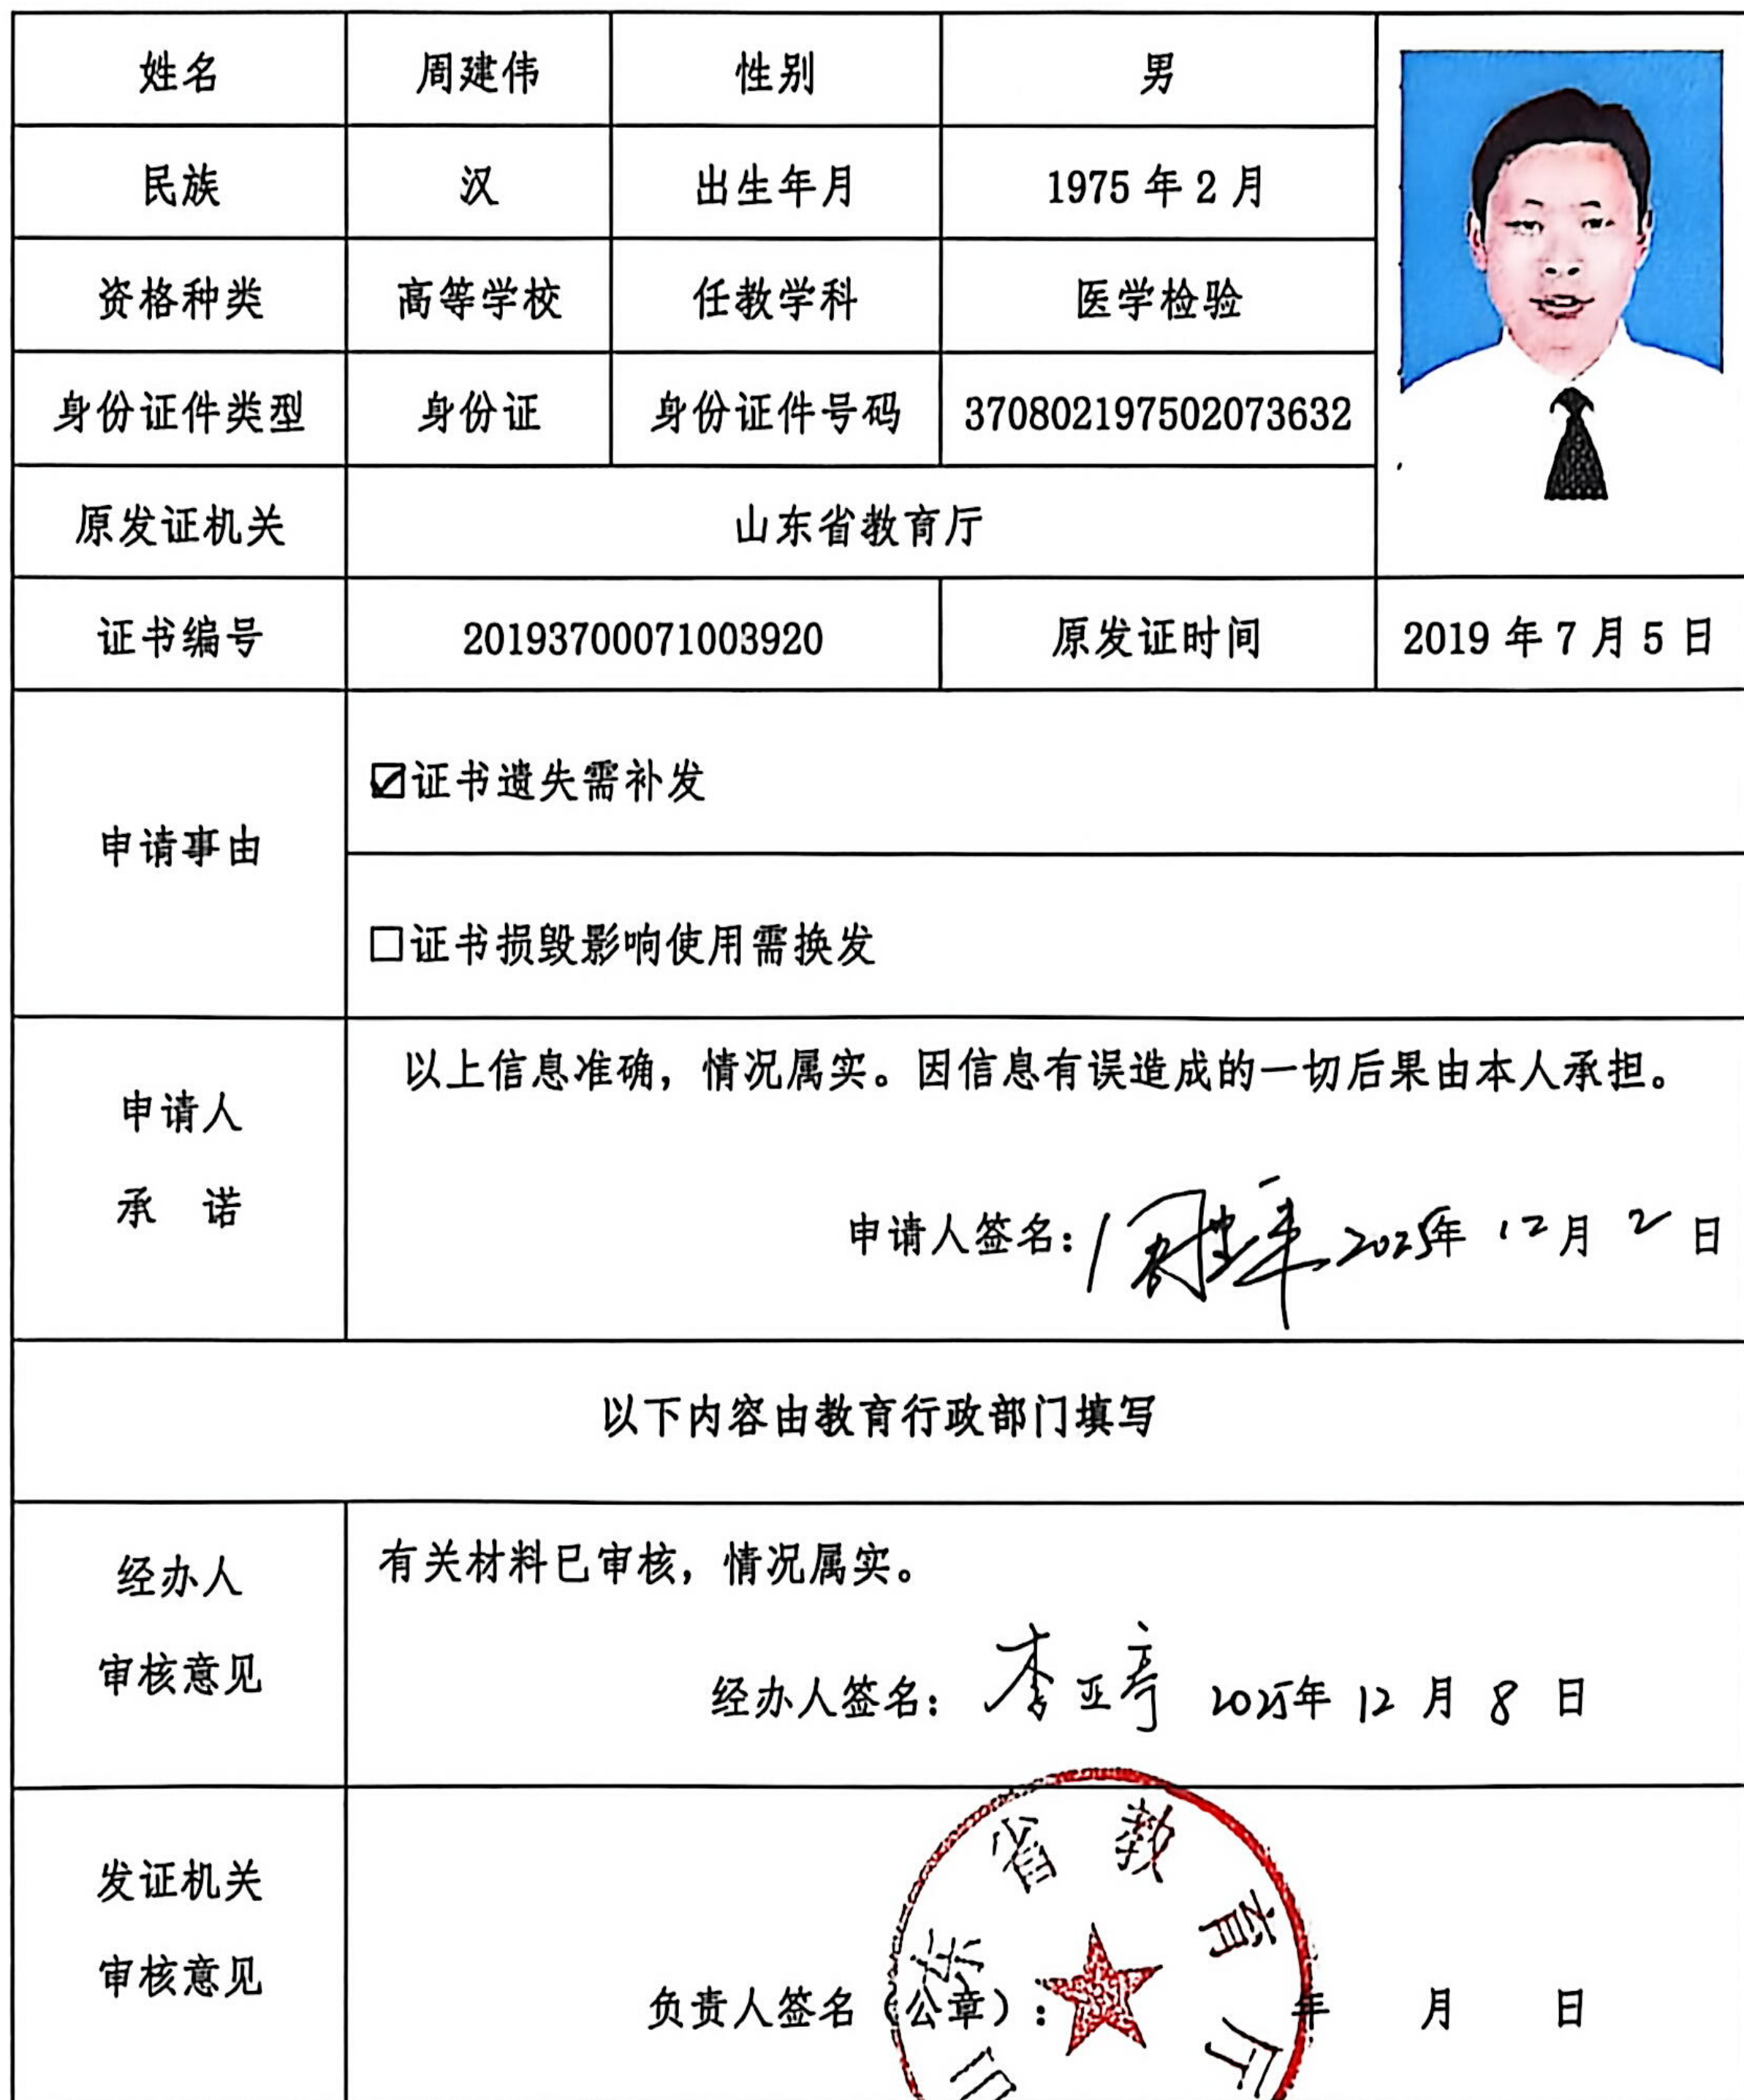 姓名 周建伟 性别 男
民族 汉 出生年月 1975 年 2 月
资格种类 高等学校 任教学科 医学检验
身份证件类型 身份证 身份证件号码 370802197502073632
原发证机关 山东省教育厅
证书编号 20193700071003920 原发证时间 2019 年 7 月 5 日
申请事由
☑证书遗失需补发
□证书损毁影响使用需换发
申请人
承 诺
以上信息准确，情况属实。因信息有误造成的一切后果由本人承担。
申请人签名： 2025年 12月 2 日
以下内容由教育行政部门填写
经办人
审核意见
有关材料已审核，情况属实。
经办人签名： 李亚 2025年 12 月 8 日
发证机关
审核意见
负责人签名（公章）： 年 月 日
山东省教育厅